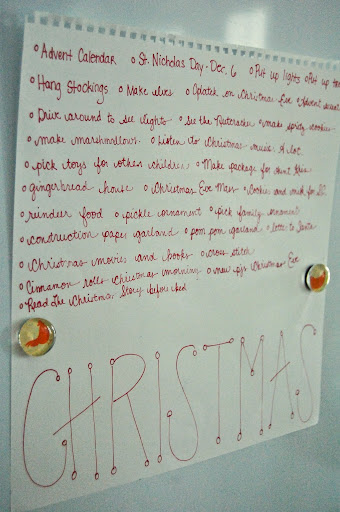 Advent Calendar ° St. Nicholas Day - Dec. 6 ° Put up lights ° Put up tree
° Hang Stockings ° Make elves ° Oplatek on Christmas Eve ° Advent wreath
° Drive around to see lights ° See the Nutcracker ° make spritz cookies
° make marshmallows ° Listen to Christmas music. A lot.
° pick toys for other children ° Make package for
° gingerbread house ° Christmas Eve Mass ° Cookies and milk for S.C.
° reindeer food ° pickle ornament ° pick family ornament
° construction paper garland ° pom pom garland ° letter to Santa
° Christmas movies and books ° cross stitch
° Cinnamon rolls Christmas morning ° new pjs Christmas Eve
° Read The Christmas Story before bed
CHRISTMAS